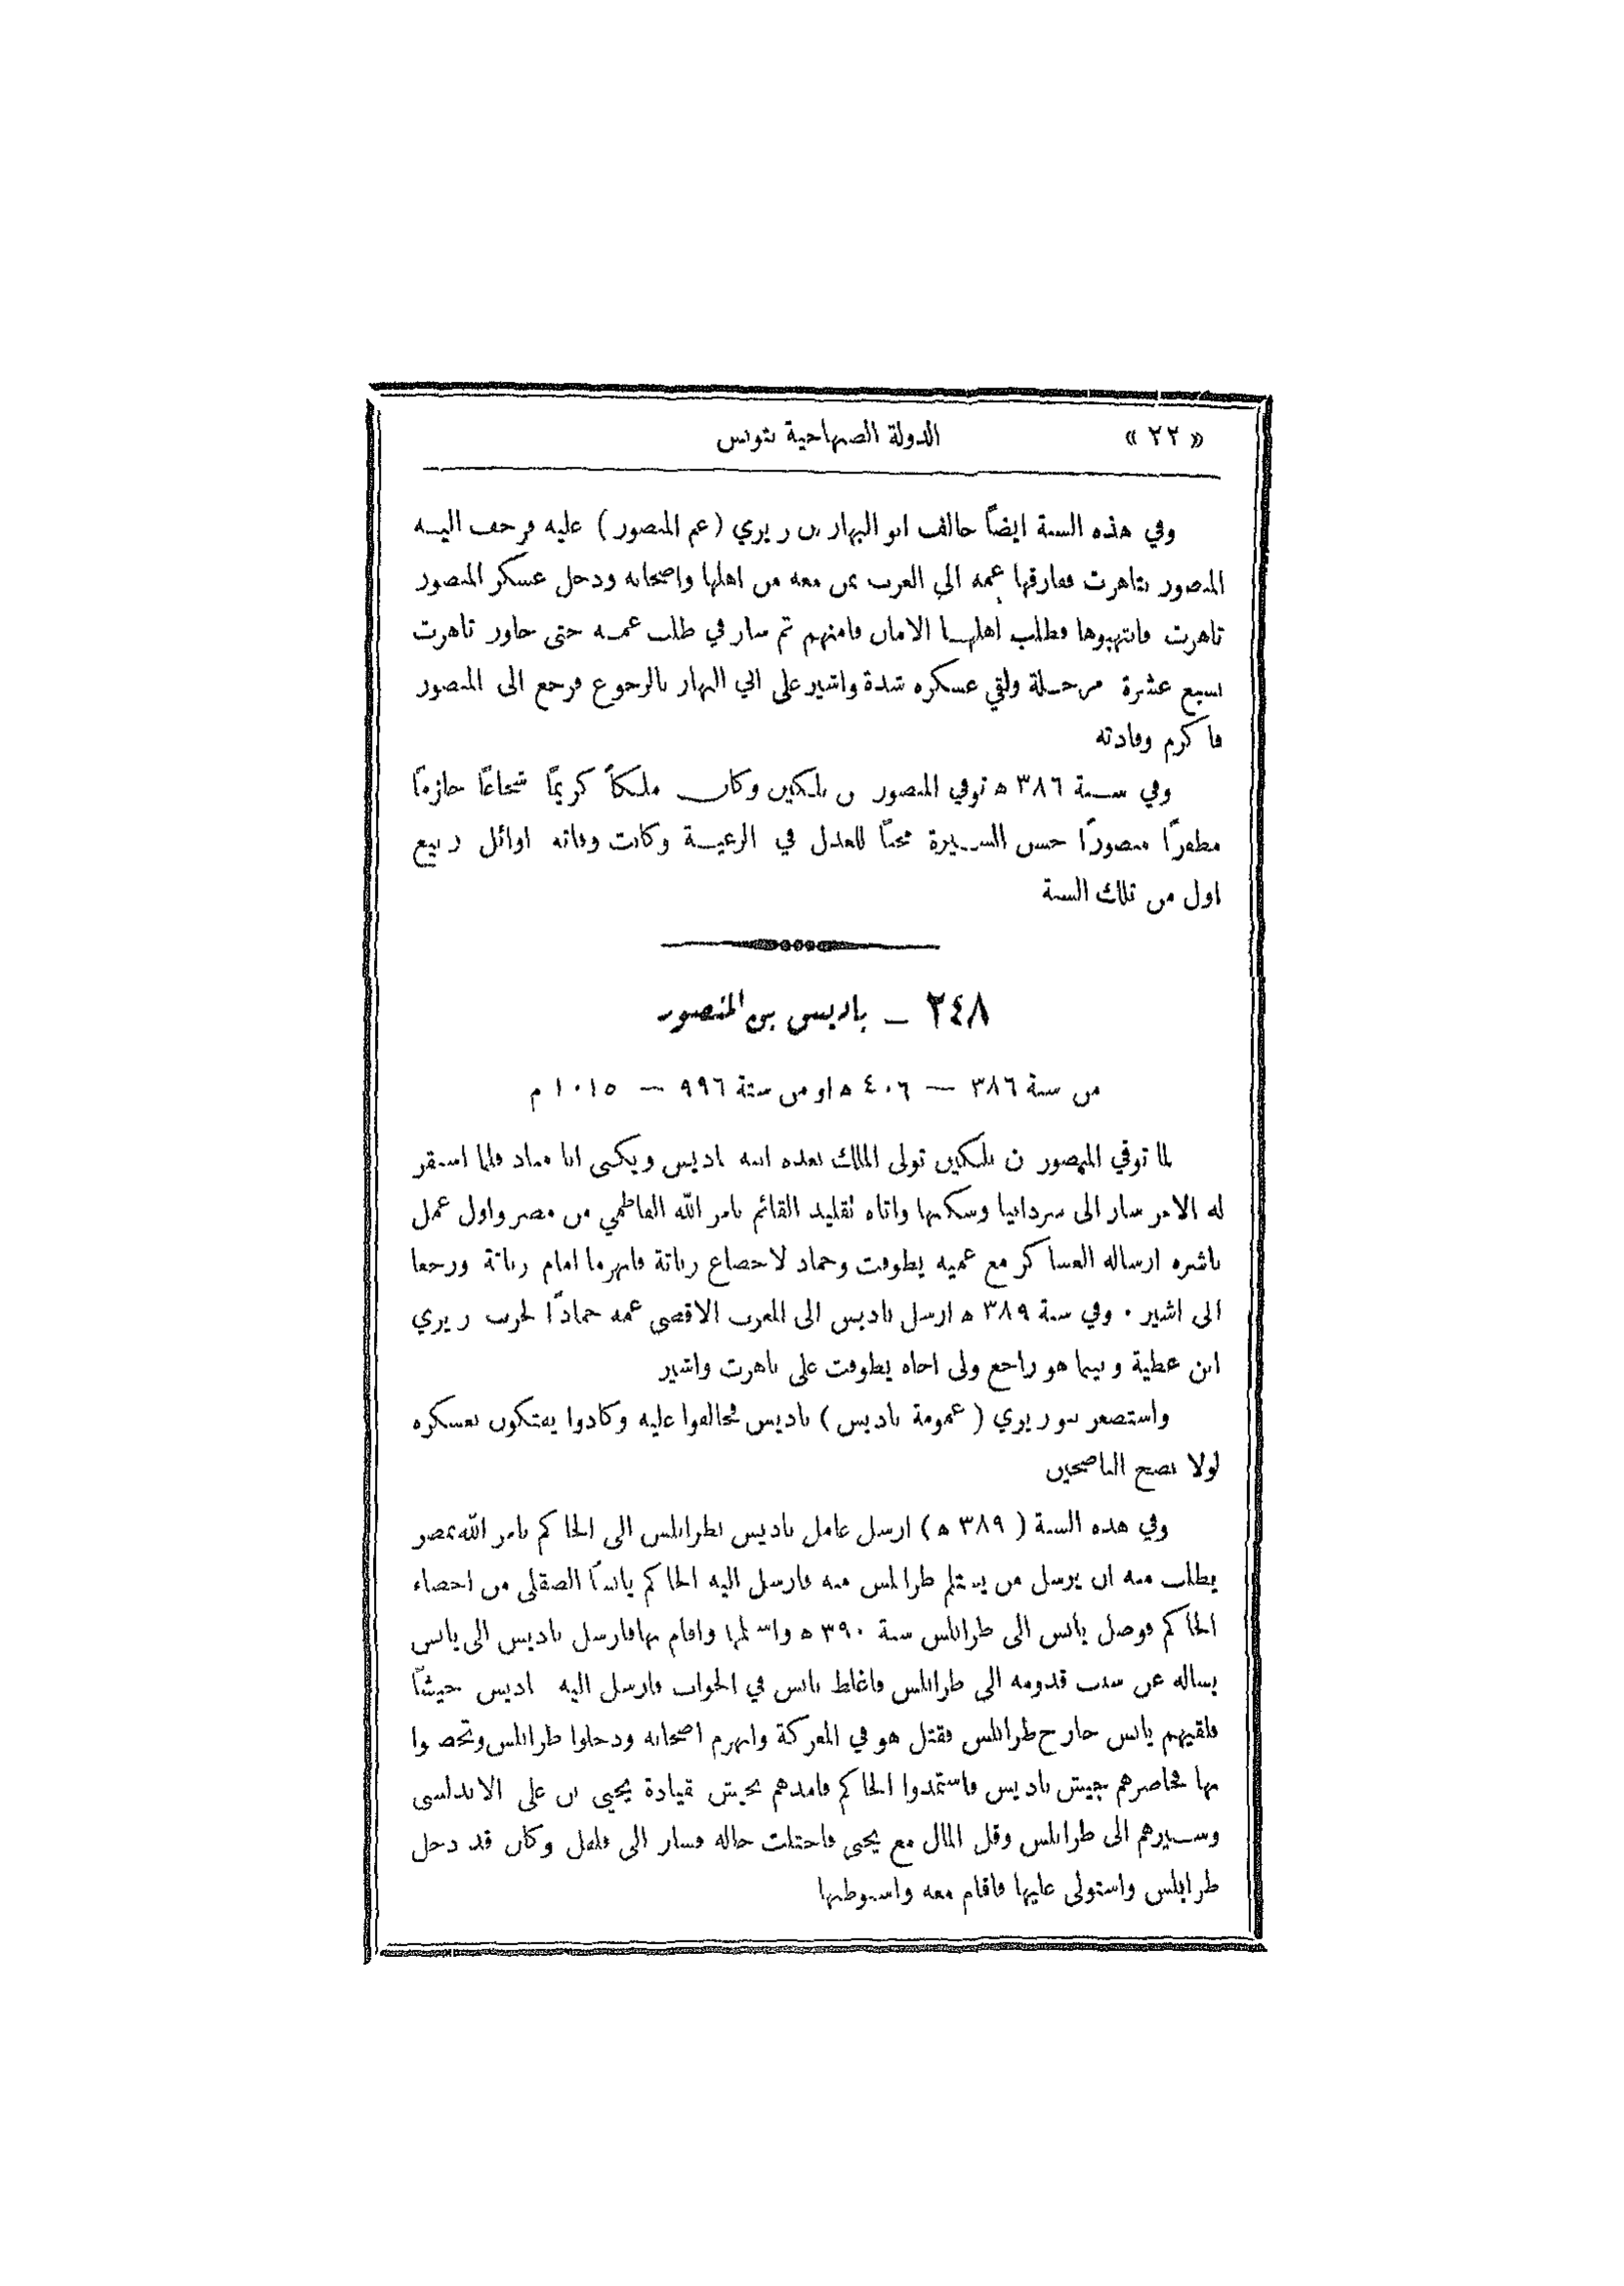 « ٢٢ » الدولة الصنهاجية بتونس
وفي هذه السنة ايضاً خالف ابو البهار بن زيري (عم المنصور) عليه فزحف اليه
المنصور بتاهرت ففارقها عمه الى الغرب بمن معه من اهلها واصحابه ودخل عسكر المنصور
تاهرت فانتهبوها فطلب اهلها الامان فامنهم ثم سار في طلب عمه حتى جاوز تاهرت
سبع عشرة مرحلة ولقي عسكره شدة واشير على ابي البهار بالرجوع فرجع الى المنصور
فاكرم وفادته
وفي سنة ٣٨٦ ه توفي المنصور بن بلكين وكان ملكاً كريمًا شجاعًا حازمًا
مظفرًا منصورًا حسن السيرة محبًا للعدل في الرعية وكانت وفاته اوائل ربيع
اول من تلك السنة
٢٤٨ – باديس بن المنصور
من سنة ٣٨٦ — ٤٠٦ ه او من سنة ٩٩٦ — ١٠١٥ م
لما توفي المنصور بن بلكين تولى الملك بعده ابنه باديس ويكنى ابا مناد فلما استقر
له الامر سار الى سردانيا وسكنها واتاه تقليد القائم بامر الله الفاطمي من مصر واول عمل
باشره ارساله العساكر مع عميه يطوفت وحماد لاخضاع زناتة فانهزما امام زناتة ورجعا
الى اشير ٠ وفي سنة ٣٨٩ ه ارسل باديس الى المغرب الاقصى عمه حمادًا لحرب زيري
ابن عطية وبينما هو راجع ولى اخاه يطوفت على تاهرت واشير
واستصغر بنو زيري (عمومة باديس) باديس فخالفوا عليه وكادوا يفتكون بعسكره
لولا نصح الناصحين
وفي هذه السنة (٣٨٩ ه) ارسل عامل باديس بطرابلس الى الحاكم بامر الله بمصر
يطلب منه ان يرسل من يستلم طرابلس منه فارسل اليه الحاكم يانسًا الصقلي من اخصاء
الحاكم فوصل يانس الى طرابلس سنة ٣٩٠ ه واستلمها واقام بها فارسل باديس الى يانس
يساله عن سبب قدومه الى طرابلس فاغلظ يانس في الجواب فارسل اليه باديس جيشًا
فلقيهم يانس خارج طرابلس فقتل هو في المعركة وانهزم اصحابه ودخلوا طرابلس وتحصنوا
بها فحاصرهم جيش باديس فاستمدوا الحاكم فامدهم بجيش بقيادة يحيى بن على الاندلسى
وسيرهم الى طرابلس وقل المال مع يحيى فاختلت حاله فسار الى فلفل وكان قد دخل
طرابلس واستولى عليها فاقام معه واستوطنها